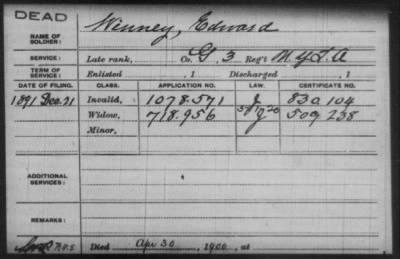 DEAD
NAME OF SOLDIER: Winney, Edward
SERVICE: Late rank, Co. G, 3 Reg't N.Y.L.A
TERM OF SERVICE: Enlisted , 1 Discharged , 1
DATE OF FILING. CLASS. APPLICATION NO. LAW. CERTIFICATE NO.
1891 Dec. 21 Invalid, 1078.571 J 830.104
Widow, 718.956 J 509 238
Minor,
ADDITIONAL SERVICES:
REMARKS:
Died Apr 30, 1900, at